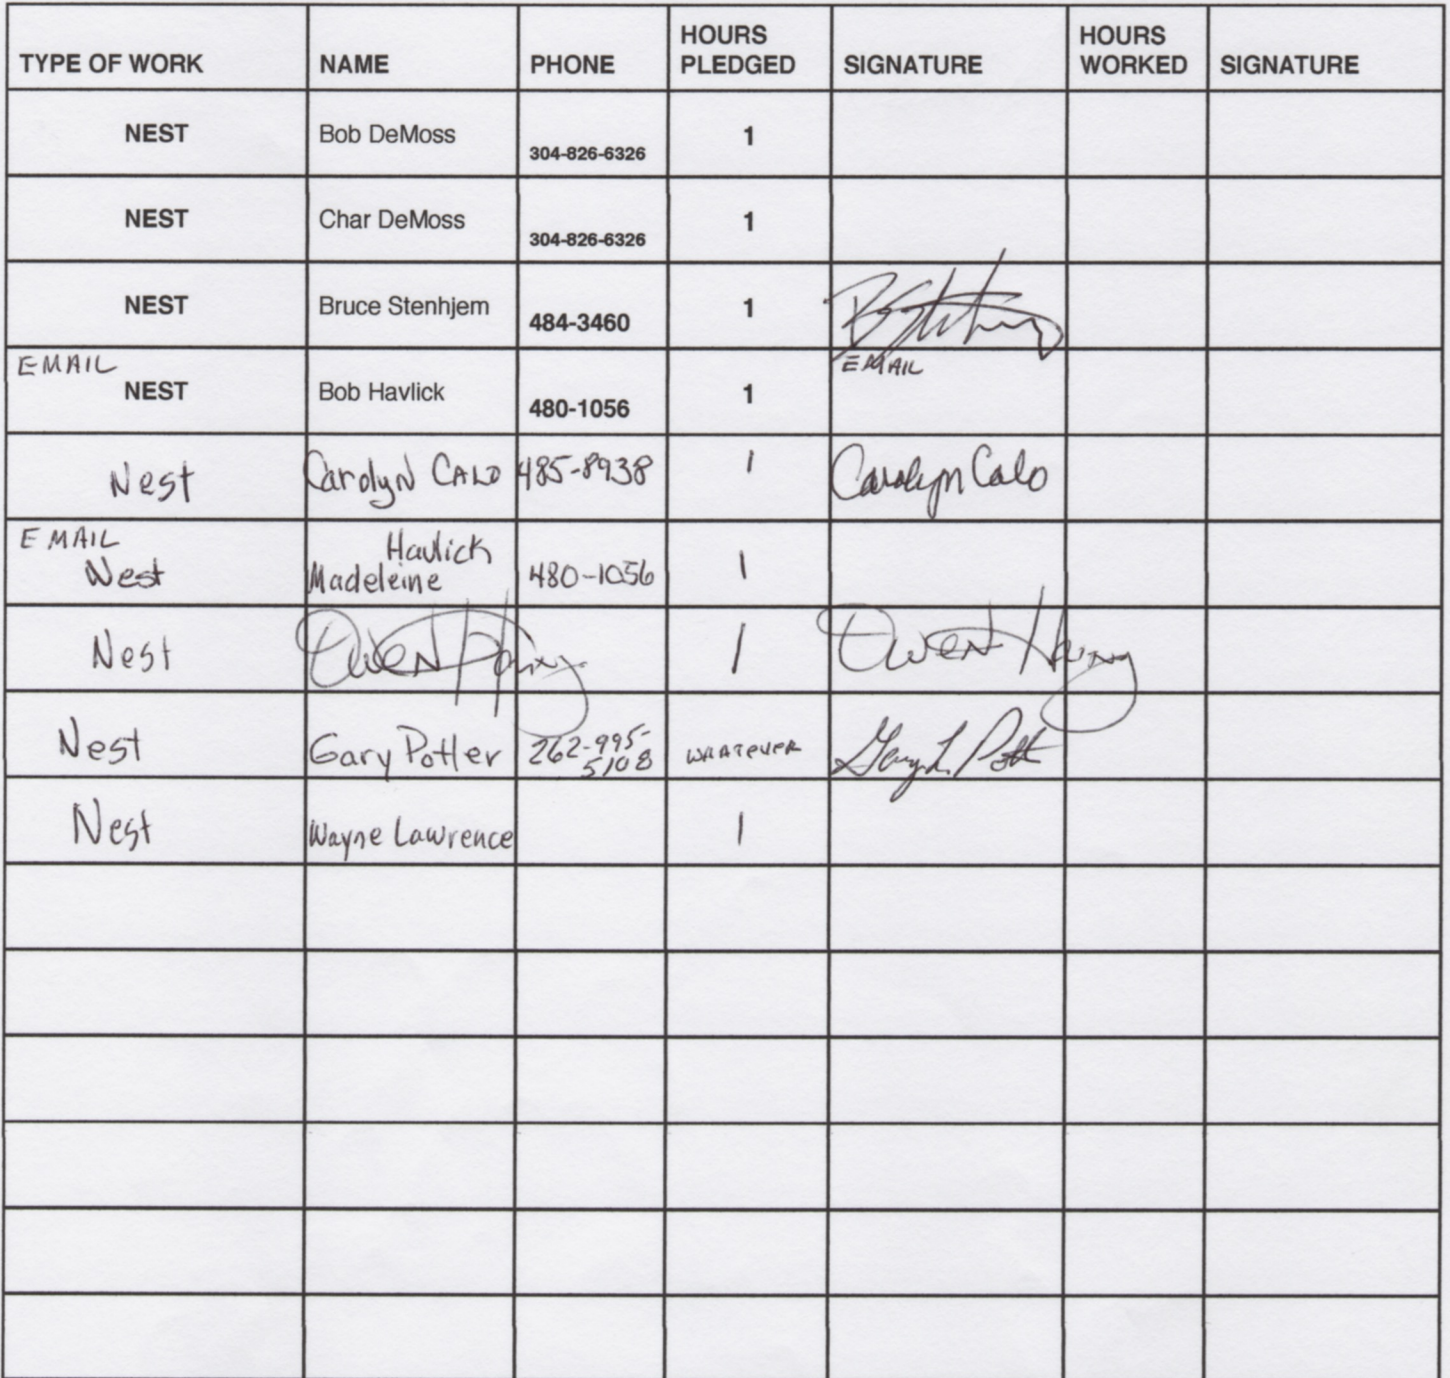 TYPE OF WORK NAME PHONE HOURS PLEDGED SIGNATURE HOURS WORKED SIGNATURE
NEST Bob DeMoss 304-826-6326 1
NEST Char DeMoss 304-826-6326 1
NEST Bruce Stenhjem 484-3460 1
EMAIL NEST Bob Havlick 480-1056 1 EMAIL
Nest Carolyn CALO 485-8938 1 Carolyn Calo
EMAIL Nest Madeleine Havlick 480-1056 1
Nest Owen 1 Owen
Nest Gary Potter 262-995-5108 WHATEVER Gary L. Pott
Nest Wayne Lawrence 1